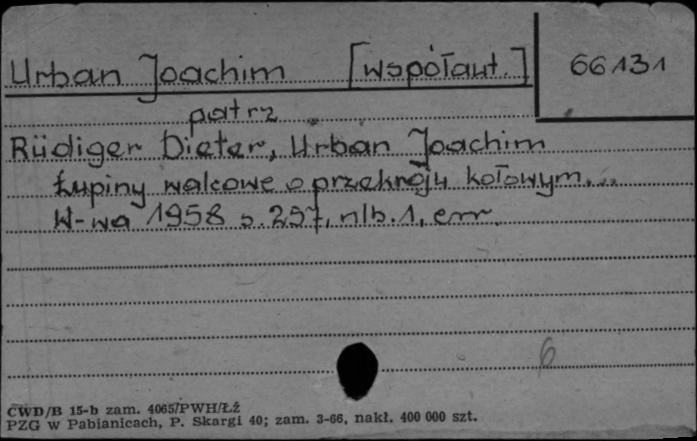 Urban Joachim [współaut.] 66131
patrz
Rüdiger Dieter, Urban Joachim
Łupiny walcowe o przekroju kołowym...
W-wa 1958 s. 257, nlb. 1, err.
6
CWD/B 15-b zam. 4065/PWH/ŁŹ
PZG w Pabianicach, P. Skargi 40; zam. 3-66, nakł. 400 000 szt.